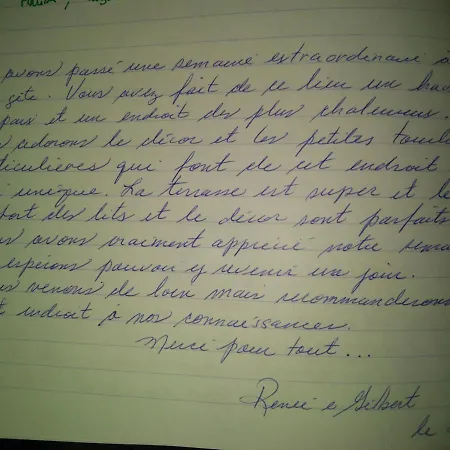 avons passé une semaine extraordinaire à
gîte. Vous avez fait de ce lieu un hav
paix et un endroit des plus chaleureux.
adorons le décor et les petites touche
ticulières qui font de cet endroit
unique. La terrasse est super et le
fort des lits et le décor sont parfaits
us avons vraiment apprécié notre sema
espérons pouvoir y revenir un jour.
us venons de loin mais recommanderons
t endroit à nos connaissances.
Merci pour tout...
Renée e Gilbert
le